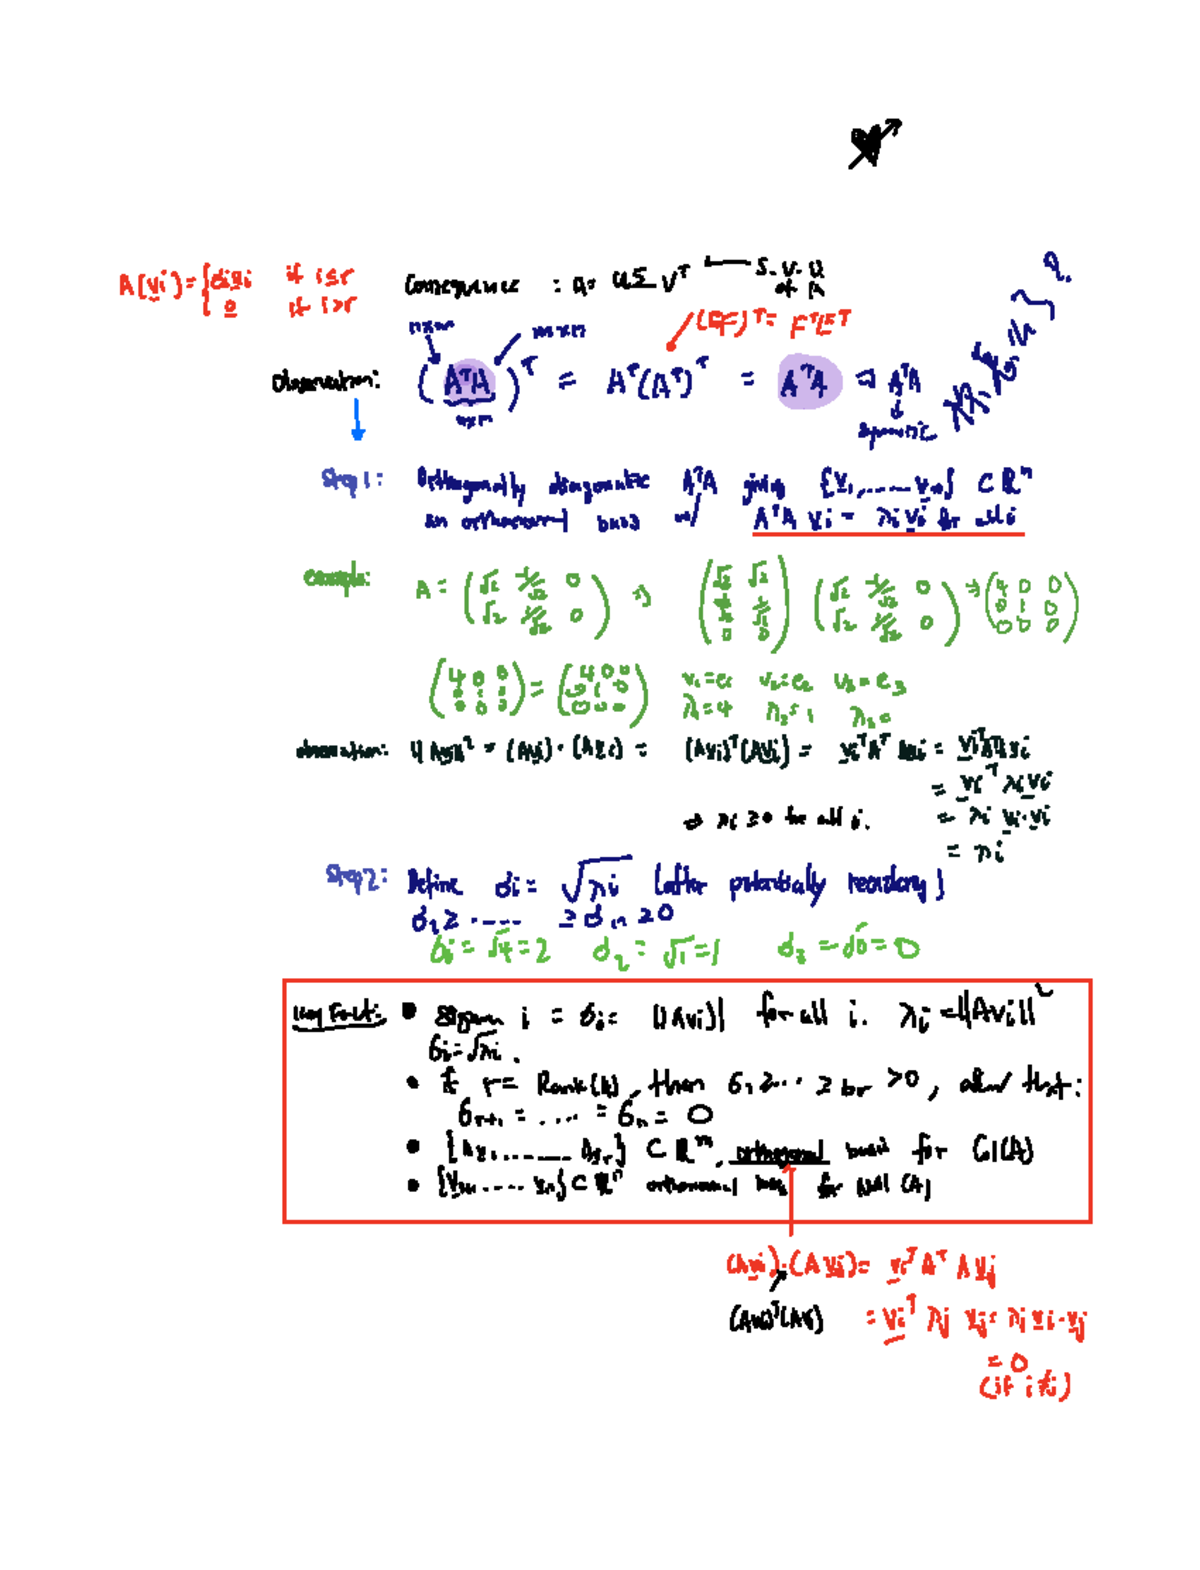 A(vi) = { σi ui if i ≤ r
0 if i > r
Consequence : A = UΣV^T S.V.D of A
(EF)^T = F^T E^T
n×m m×n
Observation: (A^T A)^T = A^T (A^T)^T = A^T A ⇒ A^T A
n×n
symmetric
Step 1: Orthogonally diagonalize A^T A giving {v1, ..... vn} ⊂ R^n
an orthonormal basis w/ A^T A vi = λi vi for all i
example: A = (√2 -1/√2 0 / √2 1/√2 0) ⇒ (√2 √2 / -1/√2 1/√2 / 0 0) (√2 -1/√2 0 / √2 1/√2 0) ⇒ (4 0 0 / 0 1 0 / 0 0 0)
(4 0 0 / 0 1 0 / 0 0 0) = (4 0 0 / 0 1 0 / 0 0 0) v1 = e1 v2 = e2 v3 = e3
λ1 = 4 λ2 = 1 λ3 = 0
observation: ||Avi||^2 = (Avi)·(Avi) = (Avi)^T (Avi) = vi^T A^T Avi = vi^T A^T A vi
= vi^T λi vi
⇒ λi ≥ 0 for all i. = λi vi·vi
= λi
Step 2: Define σi = √λi (after potentially reordering)
σ1 ≥ ..... ≥ σn ≥ 0
σ1 = √4 = 2 σ2 = √1 = 1 σ3 = √0 = 0
Key Fact: • Sigma i = σi = ||Avi|| for all i. λi = ||Avi||^2
σi = √λi.
• If r = Rank(A), then σ1 ≥ ... ≥ σr > 0, and that:
σr+1 = .... = σn = 0
• {Av1, ....... Avr} ⊂ R^m, orthogonal basis for Cl(A)
• {vr+1, ..... vn} ⊂ R^n orthonormal basis for Nul (A)
(Avi)·(Avj) = vi^T A^T A vj
(Avi)^T (Avj) = vi^T λj vj = λj vi·vj
= 0
(if i ≠ j)